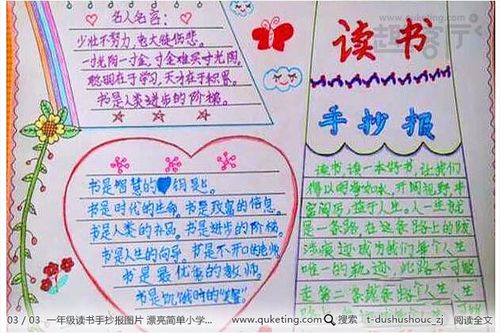 www.quketing.com
趣客厅
名人名言:
少壮不努力,老大徒伤悲。
一寸光阴一寸金,寸金难买寸光阴。
聪明在于学习,天才在于积累。
书是人类进步的阶梯。
读书
手抄报
书是智慧的 钥匙。
书是时代的生命。书是致富的信息。
书是人类的 书是进步的阶梯。
书是人生的向导。书是不开口的老师
书是最优秀的教师。
书是饥饿时的
读书,读一本好书,让我们
得以明 开阔视野丰
富阅历,益于人生。人一生就
是一条路,在这条路上的跋
涉痕迹成为我们每个人生
唯一的轨迹,此路不可能
走第二
03 / 03 一年级读书手抄报图片 漂亮简单小学... www.quketing.com 搜索 t-dushushouc_zj 阅读全文